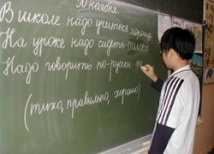 10 ноября
В школе надо учиться хорошо
На уроке надо сидеть тихо
Надо говорить по-русски п
(тихо, правильно, хорошо)